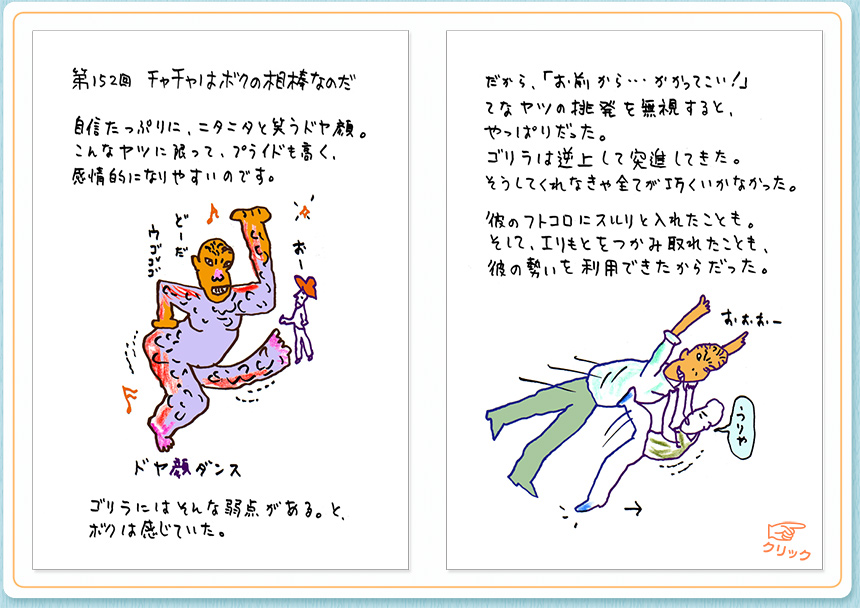 第152回 チャチャはボクの相棒なのだ
自信たっぷりに、ニタニタと笑うドヤ顔。
こんなヤツに限って、プライドも高く、
感情的になりやすいのです。
どーだ
ウゴゴゴ
おー
ドヤ顔ダンス
ゴリラにはそんな弱点がある。と、
ボクは感じていた。
だから、「お前から…かかってこい!」
てなヤツの挑発を無視すると、
やっぱりだった。
ゴリラは逆上して突進してきた。
そうしてくれなきゃ全てが巧くいかなかった。
彼のフトコロにスルリと入れたことも。
そして、エリもとをつかみ取れたことも、
彼の勢いを利用できたからだった。
おおおー
うりゃ
クリック